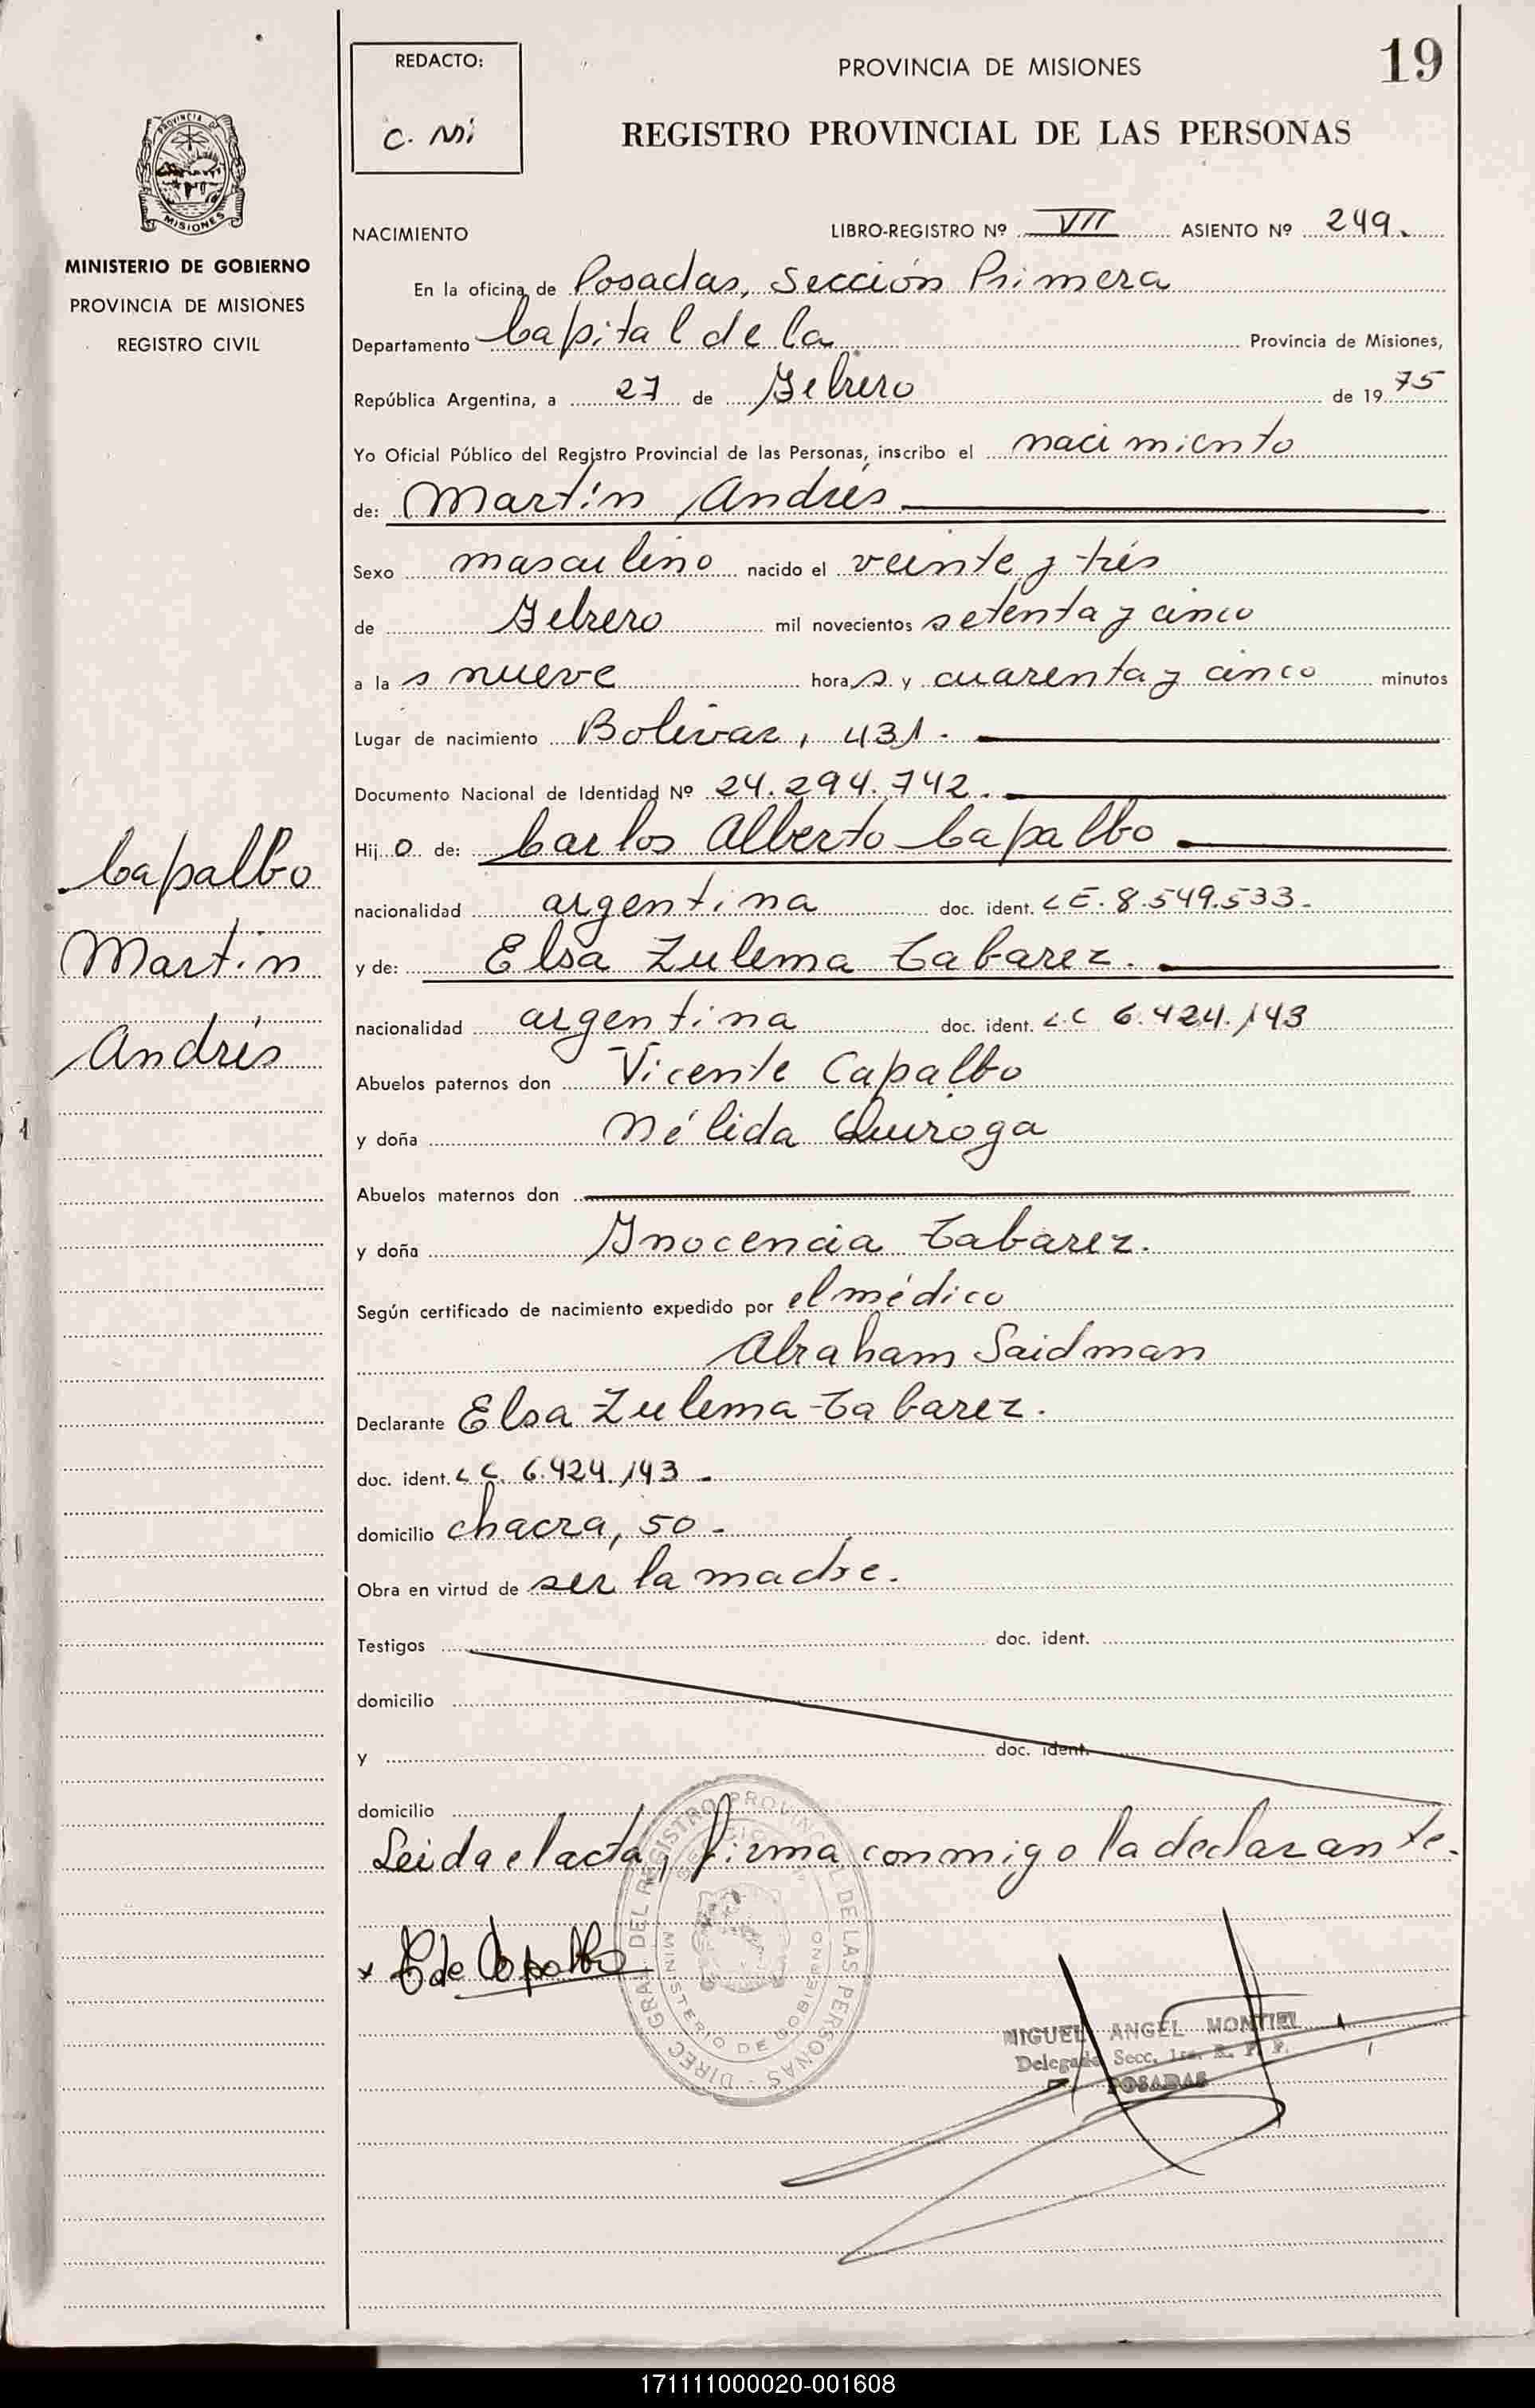 REDACTO:
C. Mi
PROVINCIA DE MISIONES
19
REGISTRO PROVINCIAL DE LAS PERSONAS
PROVINCIA DE
MISIONES
MINISTERIO DE GOBIERNO
PROVINCIA DE MISIONES
REGISTRO CIVIL
NACIMIENTO LIBRO-REGISTRO Nº VII ASIENTO Nº 249.
En la oficina de Posadas, Sección Primera
Departamento Capital de la Provincia de Misiones,
República Argentina, a 27 de Febrero de 1975
Yo Oficial Público del Registro Provincial de las Personas, inscribo el nacimiento
de: Martín Andrés
Sexo masculino nacido el veinte y trés
de Febrero mil novecientos setenta y cinco
a las nueve horas y cuarenta y cinco minutos
Lugar de nacimiento Bolivar, 431.
Documento Nacional de Identidad Nº 24.294.742.
Hijo de: Carlos Alberto Capalbo
nacionalidad argentina doc. ident. LE. 8.549.533.
y de: Elsa Zulema Tabarez.
nacionalidad argentina doc. ident. L.C 6.424.143
Abuelos paternos don Vicente Capalbo
y doña Nélida Quiroga
Abuelos maternos don
y doña Inocencia Tabarez.
Según certificado de nacimiento expedido por el médico
Abraham Saidman
Declarante Elsa Zulema Tabarez.
doc. ident. L C. 6.424.143
domicilio chacra, 50.
Obra en virtud de ser la madre.
Testigos doc. ident.
domicilio
y doc. ident.
domicilio
Leida el acta, firma conmigo la declarante.
Capalbo
Martín
Andrés
x E de Capalbo
DIREC. GRAL. DEL REGISTRO PROVINCIAL DE LAS PERSONAS
MINISTERIO DE GOBIERNO
MIGUEL ANGEL MONTIEL
Delegado Secc. 1ra. R. P. P.
POSADAS
171111000020-001608